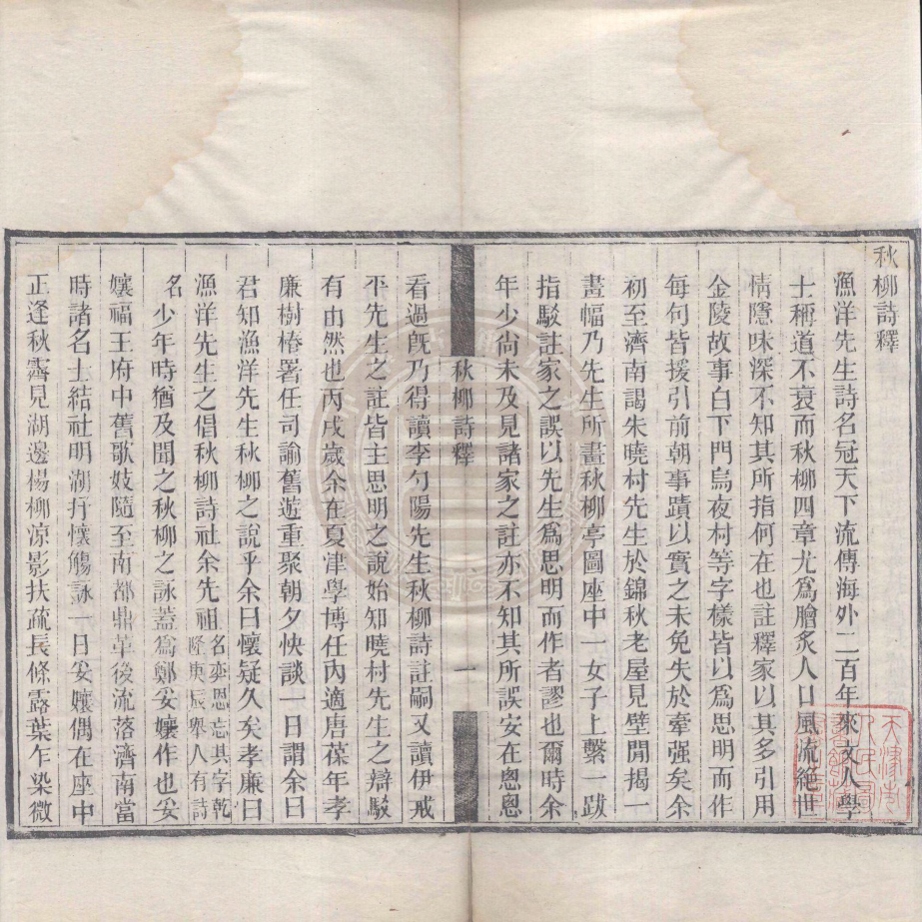 秋柳詩釋
漁洋先生詩名冠天下流傳海外二百年來文人學
士稱道不衰而秋柳四章尤爲膾炙人口風流絕世
情隱味深不知其所指何在也註釋家以其多引用
金陵故事白下門烏夜村等字樣皆以爲思明而作
每句皆援引前朝事蹟以實之未免失於牽强矣余
初至濟南謁朱曉村先生於錦秋老屋見壁閒揭一
畫幅乃先生所畫秋柳亭圖座中一女子上繫一跋
指駁註家之誤以先生爲思明而作者謬也爾時余
年少尚未及見諸家之註亦不知其所誤安在悤悤
秋柳詩釋
一
看過旣乃得讀李勺陽先生秋柳詩註嗣又讀伊戒
平先生之註皆主思明之說始知曉村先生之辯駁
有由然也丙戌歲余在夏津學博任內適唐葆年孝
廉樹椿署任司諭舊遊重聚朝夕快談一日謂余曰
君知漁洋先生秋柳之說乎余曰懷疑久矣孝廉曰
漁洋先生之倡秋柳詩社余先祖名奕思忘其字乾隆庚辰舉人有詩
名少年時猶及聞之秋柳之詠蓋爲鄭妥孃作也妥
孃福王府中舊歌妓隨至南都鼎革後流落濟南當
時諸名士結社明湖丹懷觴詠一日妥孃偶在座中
正逢秋霽見湖邊楊柳凉影扶疏長條露葉乍染微